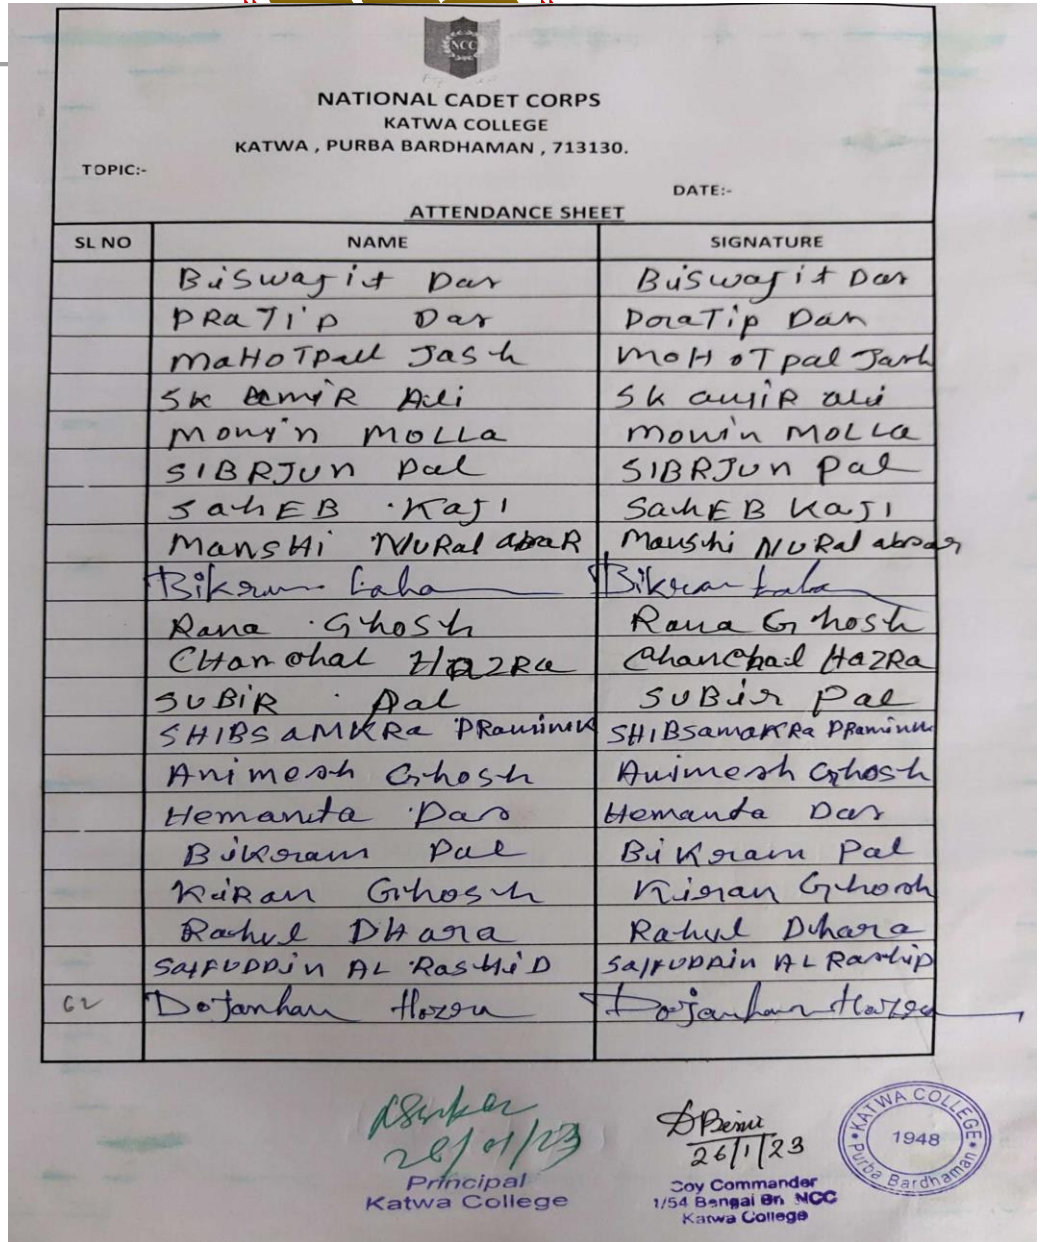 NCC
NATIONAL CADET CORPS
KATWA COLLEGE
KATWA , PURBA BARDHAMAN , 713130.
TOPIC:-
DATE:-
ATTENDANCE SHEET
SL NO NAME SIGNATURE
BiSwajit Das BiSwajit Das
PRaTiP Das PraTip Das
MaHOTpal Jash MoHoTpal Jash
SK AmiR Ali SK amiR ali
Monin MOLLA Monin MOLLa
SIBRJUn Pal SIBRJUn Pal
SahEB KaJI SahEB KaJI
ManSHi NURal absaR Manshi NURal absar
Bikram Laha Bikram Laha
Rana Ghosh Rana Ghosh
CHanchal HAZRa ChanChal HaZRa
SUBiR Pal SUBir Pal
SHIBSaMKRa PRaminik SHIBSamaKRa PRaminik
Animesh Ghosh Animesh Ghosh
Hemanta Das Hemanta Das
Bikram Pal Bikram Pal
KiRan Ghosh Kiran Ghosh
Rahul DHara Rahul Dhara
SaifUDDin AL RasHiD SaifUDDin AL Rashid
62 Hazra Hazra
26/01/23 26/1/23
Principal Coy Commander
Katwa College 1/54 Bengal Bn NCC
Katwa College
KATWA COLLEGE
1948
Purba Bardhaman